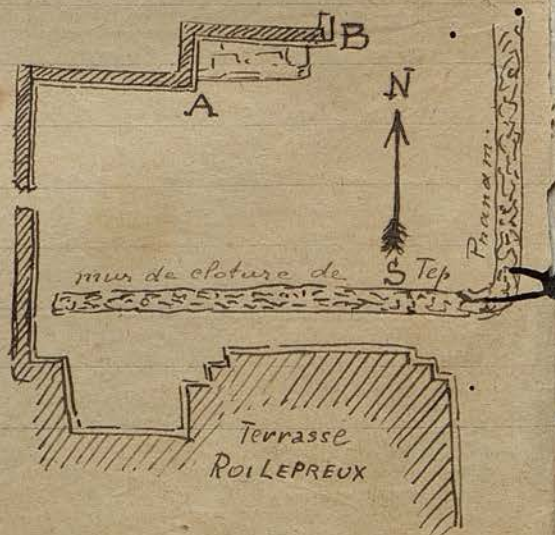 B
A
N
S
mur de cloture de Tep
Pranam.
Terrasse
ROI LEPREUX